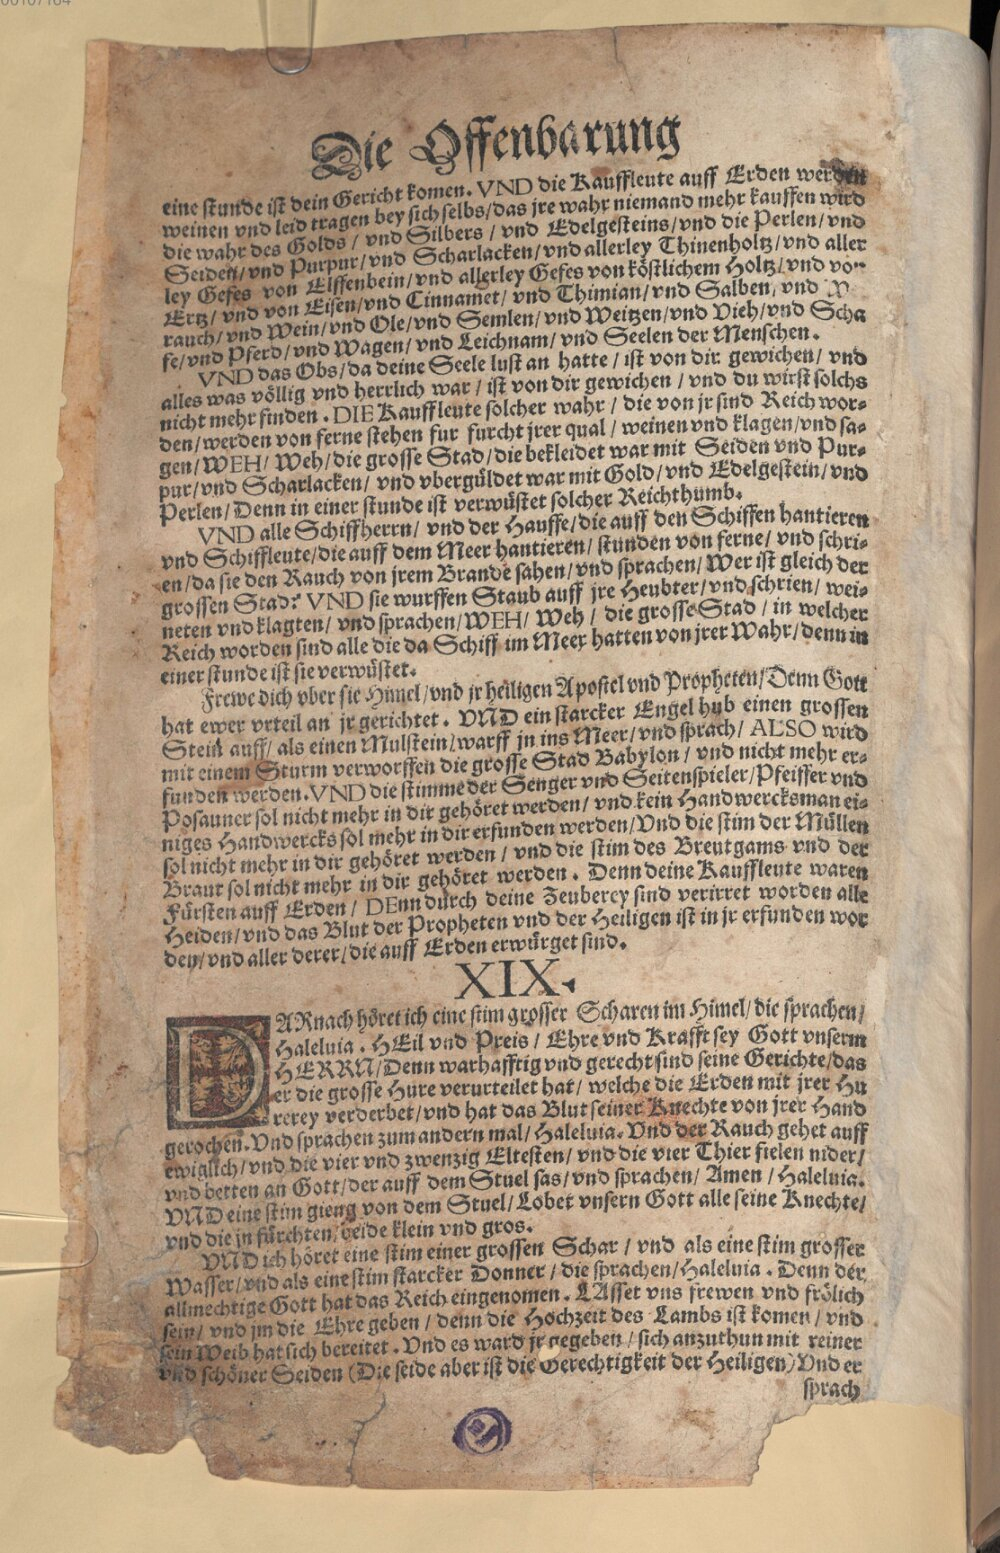 00107164
Die Offenbarung
eine stunde ist dein Gericht komen. VND die Kauffleute auff Erden werden
weinen vnd leid tragen bey sich selbs/das jre wahr niemand mehr kauffen wird
die wahr des Golds/ vnd Silbers/ vnd Edelgesteins/vnd die Perlen/vnd
Seiden/vnd Purpur/vnd Scharlacken/vnd allerley Thinenholtz/vnd aller
ley Gefes von Elffenbein/vnd allerley Gefes von köstlichem Holtz/vnd von
Ertz/ vnd von Eisen/vnd Cinnamet/ vnd Thimian/vnd Salben/ vnd
rauch/vnd Wein/vnd Ole/vnd Semlen/vnd Weitzen/vnd Vieh/vnd Scha
fe/vnd Pferd/vnd Wagen/vnd Leichnam/ vnd Seelen der Menschen.
VND das Obs/da deine Seele lust an hatte/ ist von dir gewichen/ vnd
alles was völlig vnd herrlich war/ ist von dir gewichen/ vnd du wirst solchs
nicht mehr finden. DIE Kauffleute solcher wahr/ die von jr sind Reich wor-
den/werden von ferne stehen fur furcht jrer qual/ weinen vnd klagen/vnd sa-
gen/WEH/ Weh/die grosse Stad/die bekleidet war mit Seiden vnd Pur-
pur/vnd Scharlacken/ vnd vbergüldet war mit Gold/vnd Edelgestein/vnd
Perlen/Denn in einer stunde ist verwüstet solcher Reichthumb.
VND alle Schiffherrn/ vnd der Hauffe/die auff den Schiffen hantieren
vnd Schiffleute/die auff dem Meer hantieren/ stunden von ferne/ vnd schri-
en/da sie den Rauch von jrem Brande sahen/vnd sprachen/Wer ist gleich der
grossen Stad? VND sie wurffen Staub auff jre Heubter/vnd schrien/ wei-
neten vnd klagten/ vnd sprachen/WEH/ Weh/ die grosse Stad/ in welcher
Reich worden sind alle die da Schiff im Meer hatten von jrer Wahr/denn in
einer stunde ist sie verwüstet.
Frewe dich vber sie Himel/vnd jr heiligen Apostel vnd Propheten/Denn Gott
hat ewer vrteil an jr gerichtet. VND ein starcker Engel hub einen grossen
Stein auff/ als einen Mülstein/warff jn ins Meer/vnd sprach/ ALSO wird
mit einem Sturm verworffen die grosse Stad Babylon/ vnd nicht mehr er-
funden werden.VND die stimme der Senger vnd Seitenspieler/Pfeiffer vnd
Posauner sol nicht mehr in dir gehöret werden/ vnd kein Handwercksman ei-
niges Handwercks sol mehr in dir erfunden werden/Vnd die stim der Müllen
sol nicht mehr in dir gehöret werden/ vnd die stim des Breutgams vnd der
Braut sol nicht mehr in dir gehöret werden. Denn deine Kauffleute waren
Fürsten auff Erden/ DEnn durch deine Zeuberey sind verirret worden alle
Heiden/vnd das Blut der Propheten vnd der Heiligen ist in jr erfunden wor
den/vnd aller derer/die auff Erden erwürget sind.
XIX.
DARnach höret ich eine stim grosser Scharen im Himel/die sprachen/
Haleluia. HEil vnd Preis/ Ehre vnd Krafft sey Gott vnserm
HERRN/Denn warhafftig vnd gerecht sind seine Gerichte/das
er die grosse Hure verurteilet hat/ welche die Erden mit jrer Hu
rerey verderbet/vnd hat das Blut seiner Knechte von jrer Hand
gerochen.Vnd sprachen zum andern mal/Haleluia.Vnd der Rauch gehet auff
ewiglich/vnd die vier vnd zwenzig Eltesten/vnd die vier Thier fielen nider/
vnd betten an Gott/der auff dem Stuel sas/vnd sprachen/Amen/Haleluia.
VND eine stim gieng von dem Stuel/Lobet vnsern Gott alle seine Knechte/
vnd die jn fürchten/beide klein vnd gros.
VND ich höret eine stim einer grossen Schar/ vnd als eine stim grosser
Wasser/vnd als eine stim starcker Donner/die sprachen/Haleluia. Denn der
allmechtige Gott hat das Reich eingenomen. LAsset vns frewen vnd frölich
sein/ vnd jm die Ehre geben/ denn die Hochzeit des Lambs ist komen/ vnd
sein Weib hat sich bereitet. Vnd es ward jr gegeben/sich anzuthun mit reiner
vnd schöner Seiden (Die seide aber ist die Gerechtigkeit der Heiligen) Vnd er
sprach